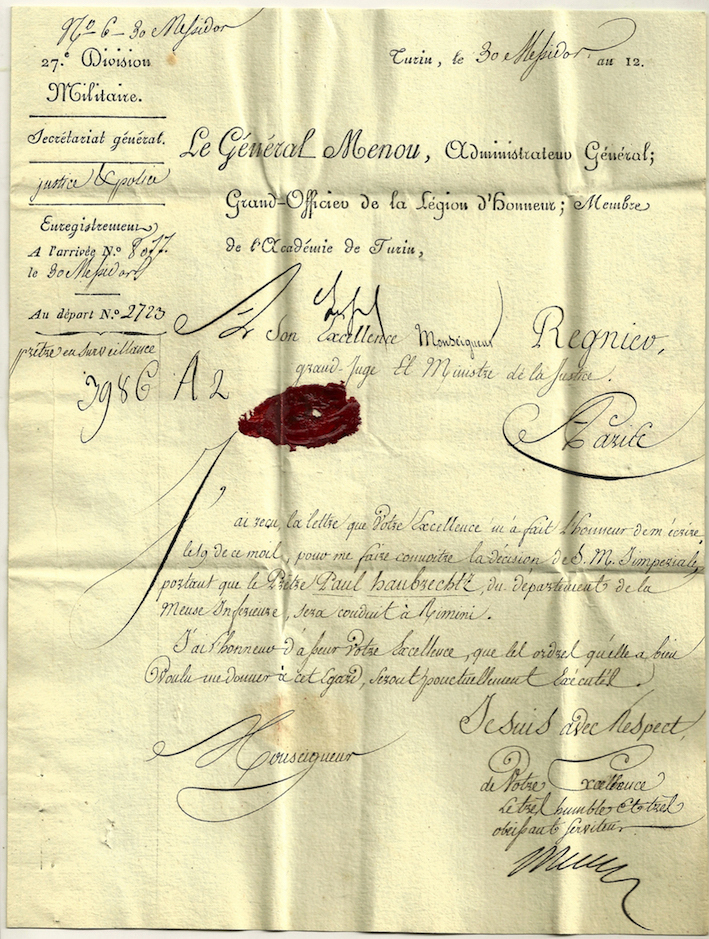 Nº 6 - 30 Messidor
27.e Division
Militaire.
Secrétariat général.
justice & police
Enregistrement
A l'arrivée N.º 8077
le 30 Messidor
Au départ N.º 2723
prêtre en surveillance
3986 A 2
Turin, le 30 Messidor an 12.
Le Général Menou, Administrateur Général;
Grand-Officier de la Légion d'Honneur; Membre
de l'Académie de Turin,
A Son Excellence Monseigneur Regnier,
grand-Juge Et Ministre de la Justice.
A Paris
J'ai reçu la lettre que Votre Excellence m'a fait l'honneur de m'écrire
le 19 de ce mois, pour me faire connoitre la décision de S. M. Impériale,
portant que le Prêtre Paul haubrechtz, du département de la
Meuse Inférieure, sera conduit à Rimini.
J'ai l'honneur d'asseur Votre Excellence, que les ordres qu'elle a bien
Voulu me donner à cet Egard, seront ponctuellement Exécutés.
Je suis avec Respect,
Monseigneur
de Votre Excellence
Le très humble et très
obéissant Serviteur.